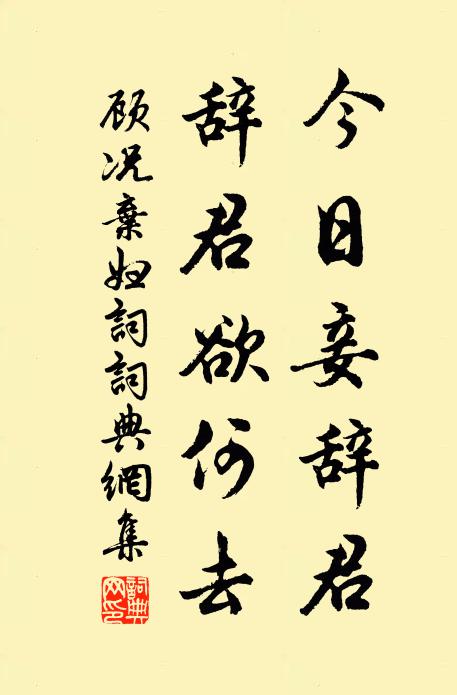 今日妾辞君
辞君欲何去
顾况棄妇詞詞典網集
詞典网印